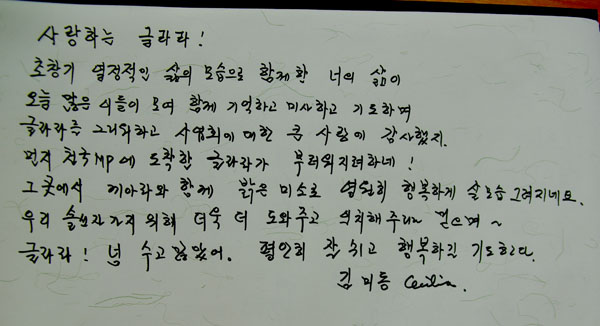 사랑하는 글라라!
초창기 열정적인 삶의 모습으로 함께한 너의 삶이
오늘 많은 이들이 모여 함께 기억하고 미사하고 기도하며
글라라를 그리워하고 사업회에 대한 큰 사랑에 감사했지.
먼저 천국MP에 도착한 글라라가 부러워지려하네!
그곳에서 끼아라와 함께 밝은 미소로 영원히 행복하게 살 모습 그려지네요.
우리 솔선자가 위해 더욱 더 도와주고 의지해주리라 믿으며~
글라라! 넘 수고 많았어. 편안히 잘 쉬고 행복하길 기도한다.
김미동 Cecilia.